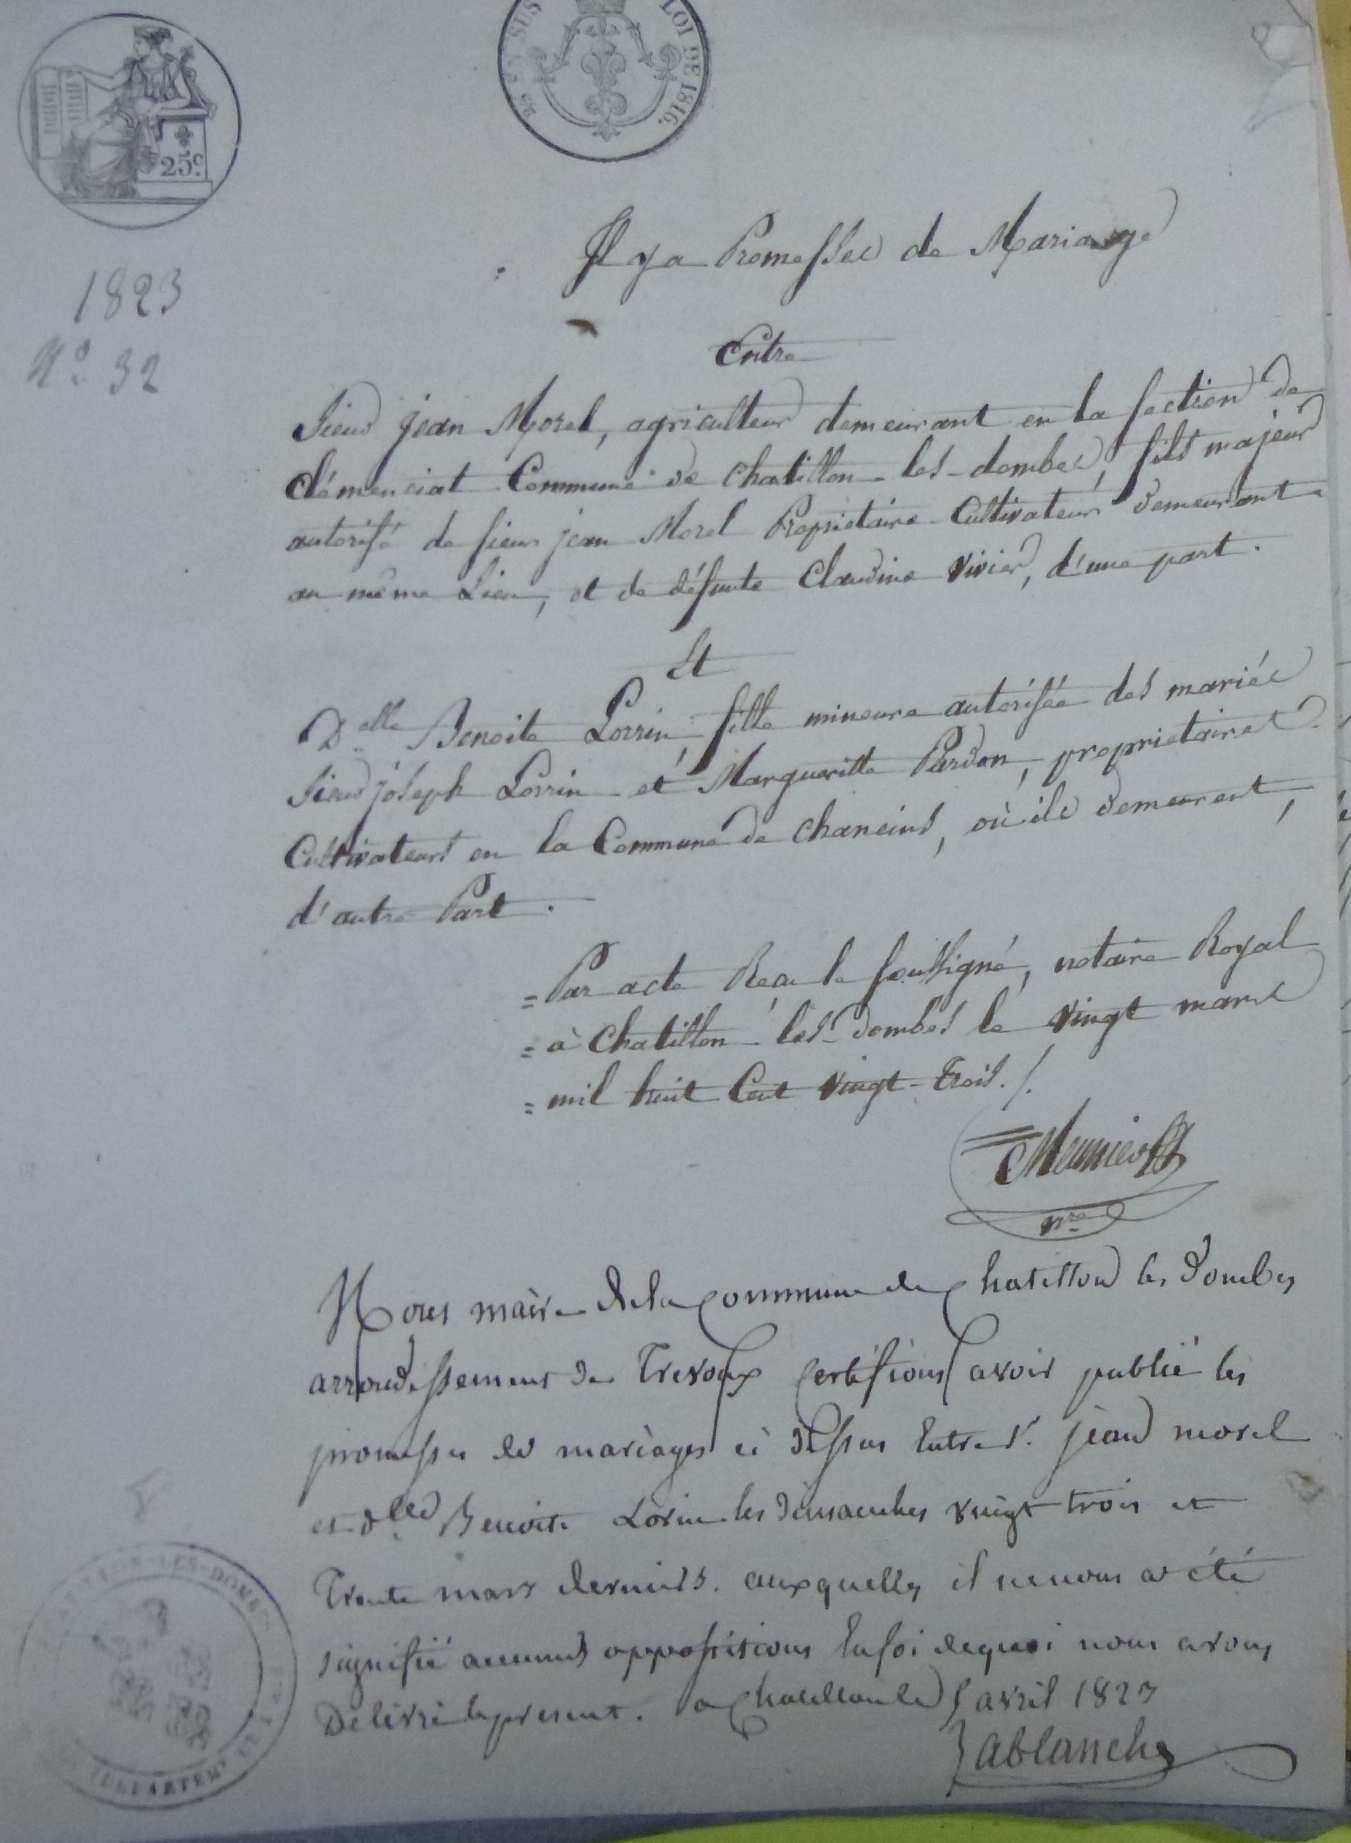 EN SUS
LOI DE 1816.
25c.
1823
N.º 32
Il y a Promesses de Mariage
Entre
Sieur jean Morel, agriculteur demeurant en la section de
Clémenciat Commune de Chatillon-les-dombes, fils majeur
autorisé de sieur jean Morel Propriétaire-Cultivateur demeurant
au même Lieu, et de défunte Claudine Vivier, d'une part.
Et
Delle Benoite Lorrin, fille mineure autorisée des mariés
Sieur joseph Lorrin et Margueritte Pardon, proprietaires
Cultivateurs en la Commune de Chaneins, où ils demeurent,
d'autre Part.
= Par acte Reçu le soussigné, notaire Royal
= à Chatillon-les-dombes le vingt mars
= mil huit Cent vingt-Trois./.
Meunier
nre
Nous maire de la Commune de Chatillon les Dombes
arrondissement de Trevoux Certifions avoir publié les
promesses de mariages ci dessus Entre Sr. jean morel
et dlle Benoite Lorin les dimanches vingt trois et
Trente mars derniers. auxquelles il ne nous a été
signifié aucunes oppositions En foi de quoi nous avons
Delivré le present. a Chatillon le 5 avril 1823
Lablanche
CHATILLON-LES-DOMBES
DEPARTEMT DE L'